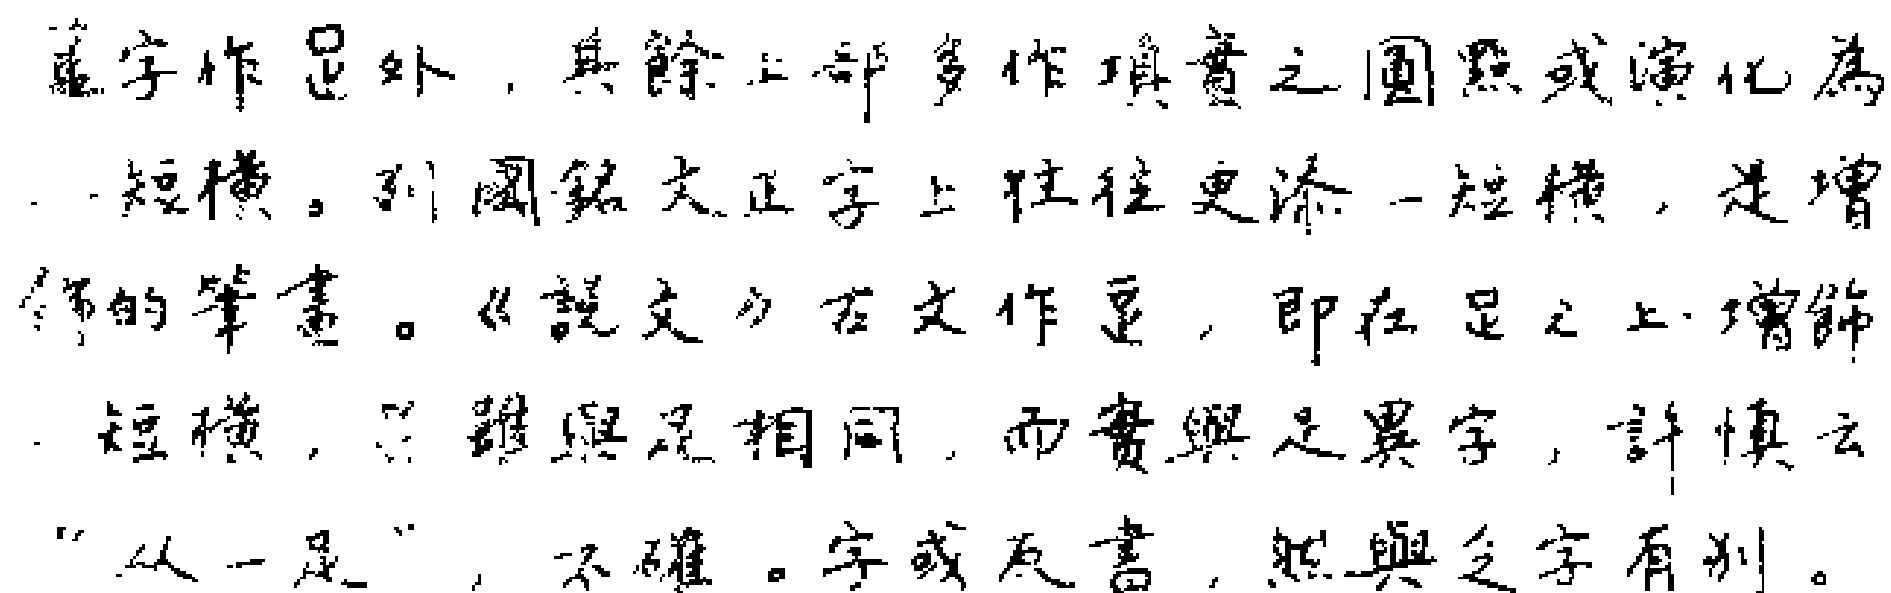 蓋字作𤴓外,其餘上部多作填實之圓點或演化為
一短橫。列國銘文正字上往往更添一短橫,是增
飾的筆畫。《說文》古文作𤴓,即在足之上增飾
一短橫,只雖與足相同,而實與足異字,許慎云
“从一足”,不確。字或反書,然與乏字有別。